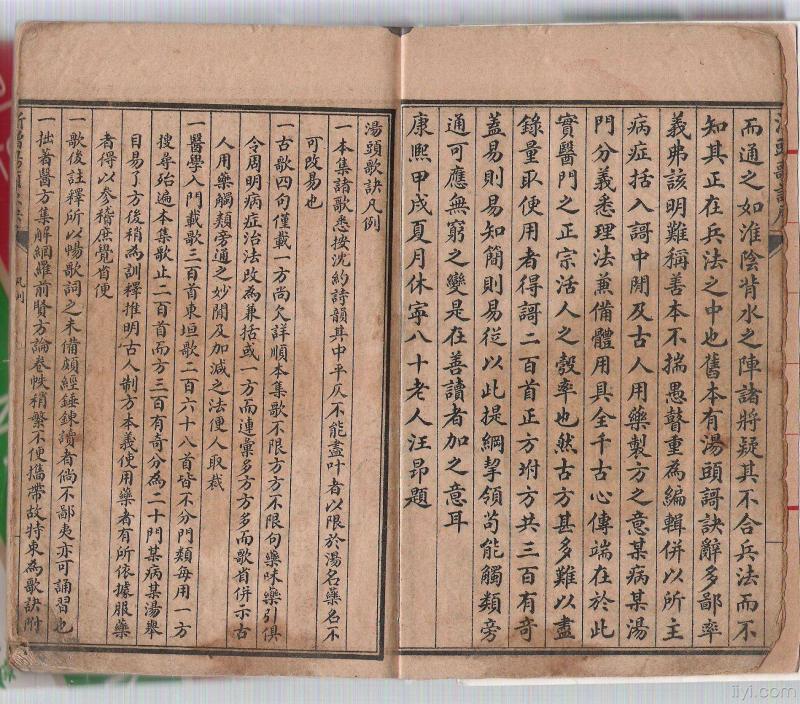 湯頭歌訣序
而通之如淮陰背水之陣諸將疑其不合兵法而不
知其正在兵法之中也舊本有湯頭謌訣辭多鄙率
義弗該明難稱善本不揣愚瞽重為編輯併以所主
病症括入謌中閒及古人用藥製方之意某病某湯
門分義悉理法兼備體用具全千古心傳端在於此
實醫門之正宗活人之彀率也然古方甚多難以盡
錄量取便用者得謌二百首正方坿方共三百有奇
蓋易則易知簡則易從以此提綱挈領苟能觸類旁
通可應無窮之變是在善讀者加之意耳
康熙甲戌夏月休寧八十老人汪昂題
湯頭歌訣凡例
一本集諸歌悉按沈約詩韻其中平仄不能盡叶者以限於湯名藥名不
可改易也
一古歌四句僅載一方尚欠詳順本集歌不限方方不限句藥味藥引俱
令周明病症治法改為兼括或一方而連彙多方方多而歌省併示古
人用藥觸類旁通之妙閒及加減之法便人取裁
一醫學入門載歌三百首東垣歌二百六十八首皆不分門類每用一方
搜尋殆遍本集歌止二百首而方三百有奇分為二十門某病某湯舉
目易了方後稍為訓釋推明古人制方本義使用藥者有所依據服藥
者得以參稽庶覺省便
一歌後註釋所以暢歌詞之未備頗經錘鍊讀者倘不鄙夷亦可誦習也
一拙著醫方集解網羅前賢方論卷帙稍繁不便攜帶故特束為歌訣附
凡例
iiyi.com